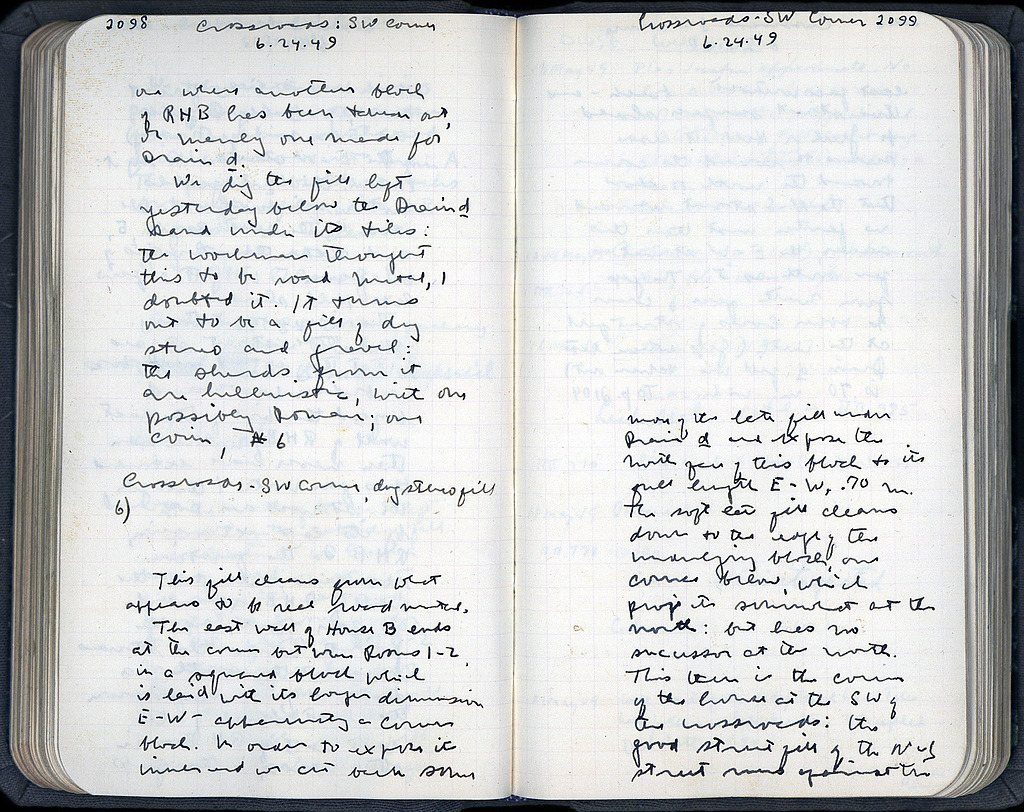 2098 Crossroads: SW Corner
6.24.49
or where another block
of RHB has been taken out,
or merely one made for
Drain d.
We dig the fill left
yesterday below the Drain d
sand under its tiles:
the workman thought
this to be road metal, I
doubted it. It turns
out to be a fill of dug
stereo and gravel:
the sherds from it
are hellenistic, with one
possibly Roman; one
coin, #6
Crossroads - SW Corner, dug stereo fill
6)
This fill cleans from what
appears to be real road metal.
The east wall of House B ends
at the corner between Rooms 1-2,
in a squared block which
is laid with its longer dimension
E-W - apparently a corner
block. In order to expose its
inner end we cut back some
Crossroads - SW Corner 2099
6.24.49
more of the late fill under
Drain d and expose the
north face of this block to its
full length E-W, .70 m.
The soft late fill cleans
down to the top of the
underlying block, one
course below, which
projects somewhat at the
north: but has no
successor at the north.
This then is the corner
of the house at the SW of
the crossroads: the
good street fill of the N-S
street runs against the